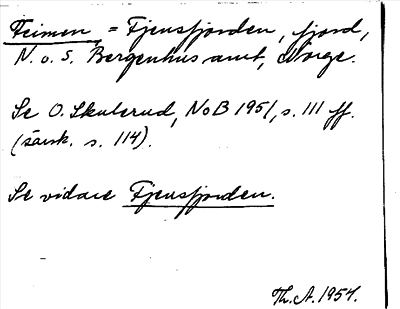 Feimen, = Fjensfjorden, fjord,
N. o. S. Bergenhus amt, Norge.
Se O. Skulerud, NoB 1951, s. 111 ff.
(särsk. s. 114).
Se vidare Fjensfjorden.
Th. A. 1954.